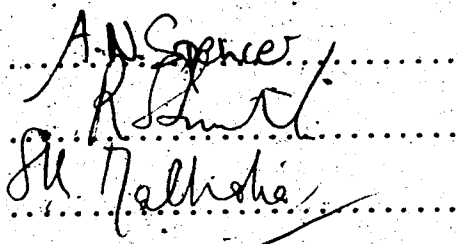 A.N. Spencer
R Smith
SK. Malhotra